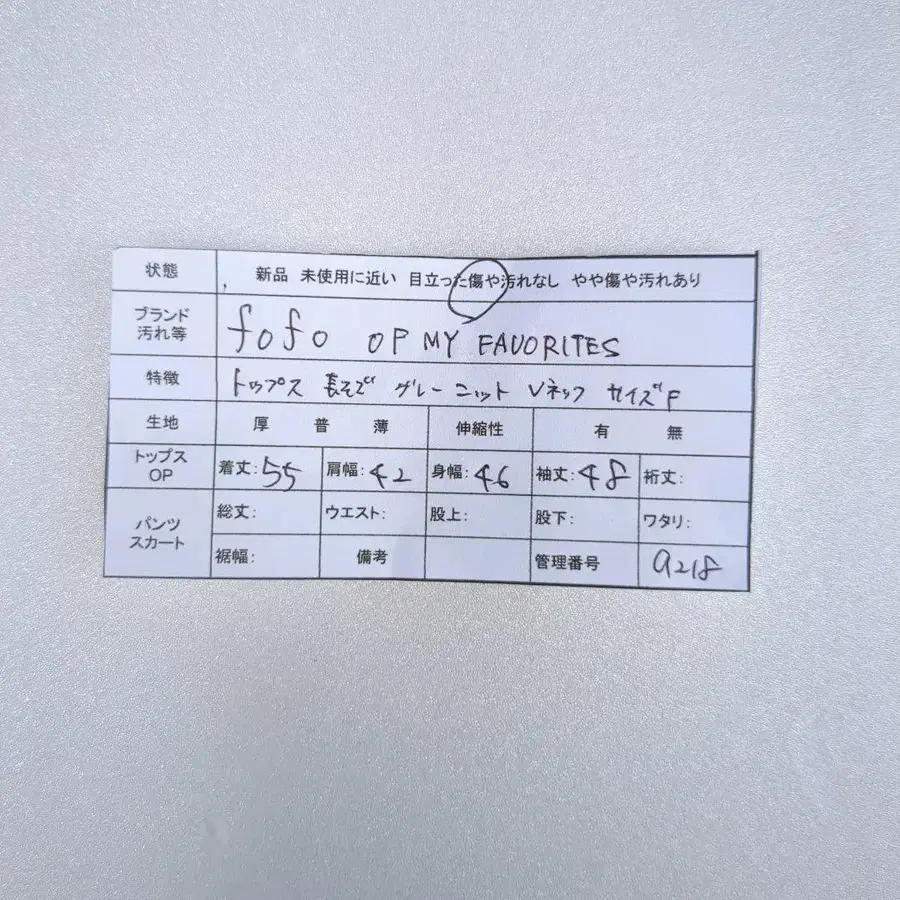 状態 新品 未使用に近い 目立った傷や汚れなし やや傷や汚れあり
ブランド
汚れ等 fofo OP MY FAVORITES
特徴 トップス 長そで グレー ニット Vネック サイズF
生地 厚 普 薄 伸縮性 有 無
トップス
OP 着丈:55 肩幅:42 身幅:46 袖丈:48 裄丈:
パンツ
スカート 総丈: ウエスト: 股上: 股下: ワタリ:
裾幅: 備考 管理番号 a218